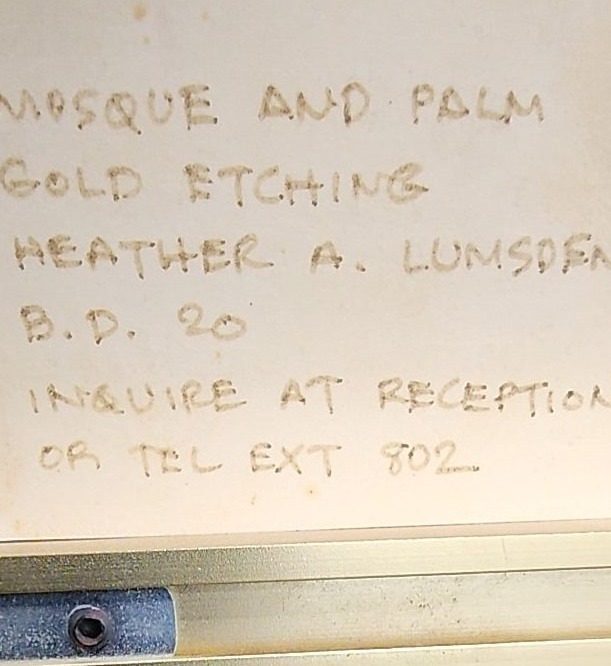 MOSQUE AND PALM
GOLD ETCHING
HEATHER A. LUMSDEN
B.D. 20
INQUIRE AT RECEPTION
OR TEL EXT 802